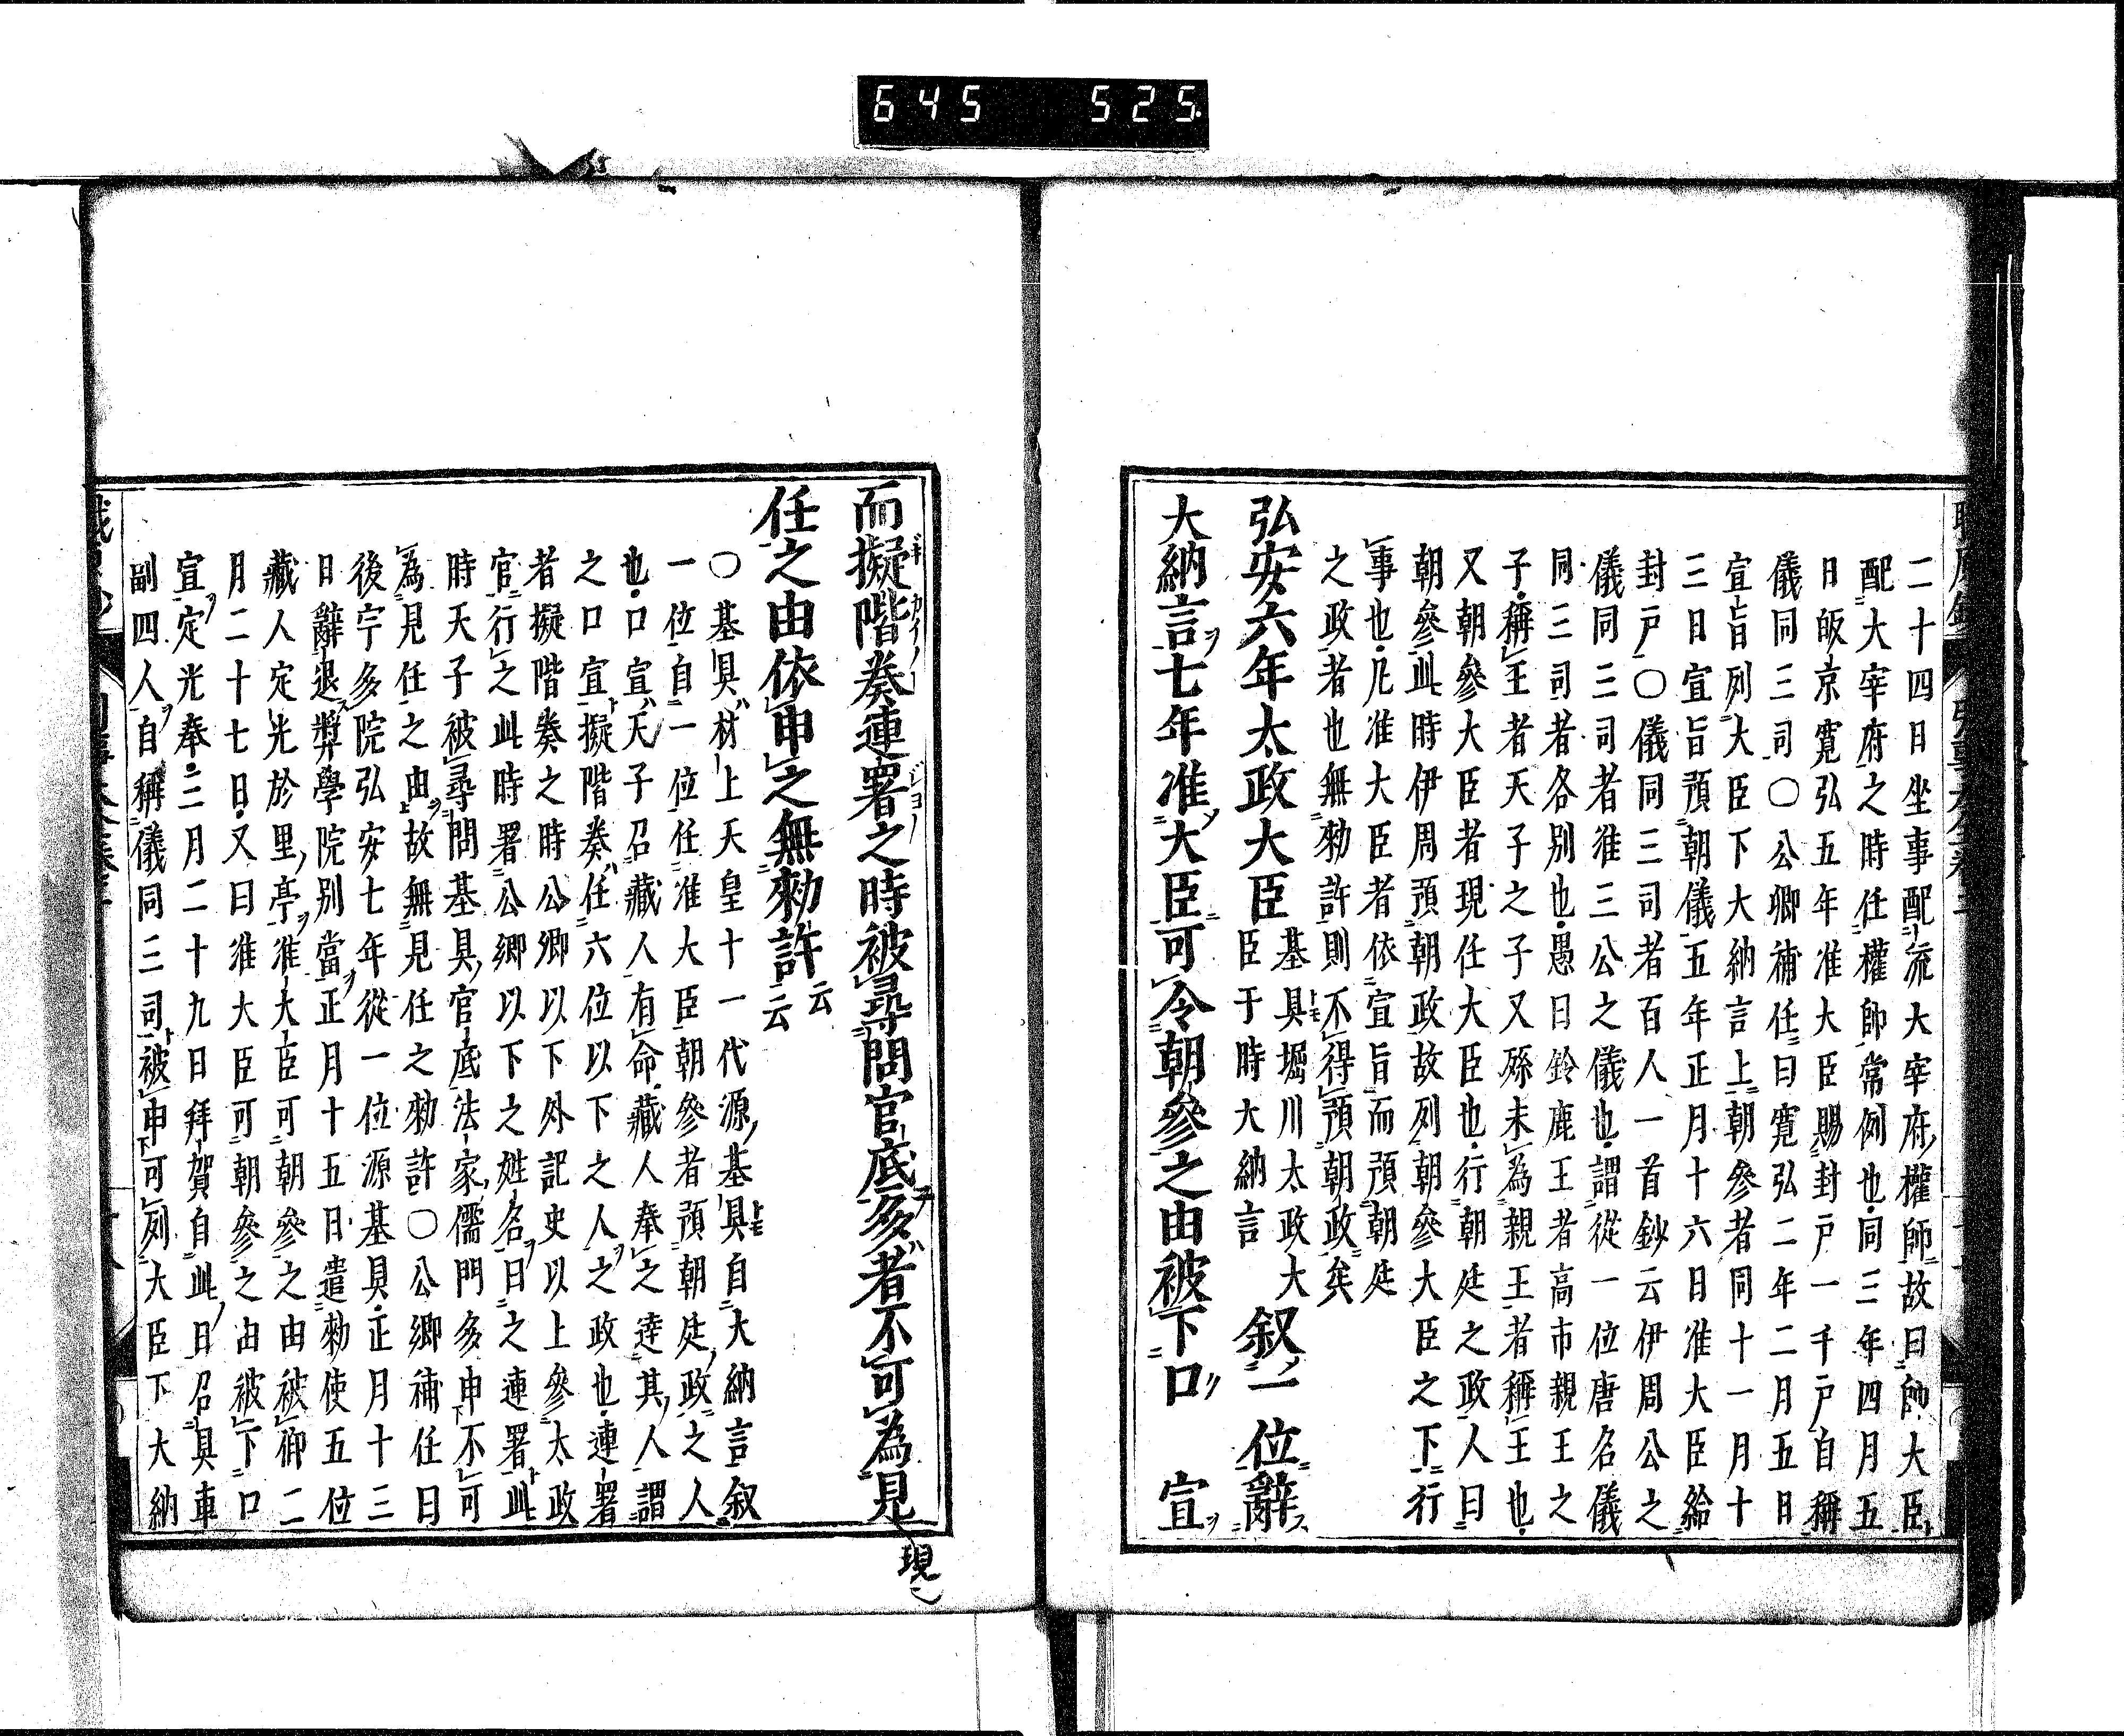 645 525
二十四日坐事配流大宰府權師故曰帥大臣
配大宰府之時任權帥常例也同三年四月五
日皈京寛弘五年准大臣賜封戸一千戸自稱
儀同三司〇公卿補任曰寛弘二年二月五日
宣旨列大臣下大納言上朝參者同十一月十
三日宣旨預朝儀五年正月十六日准大臣給
封戸〇儀同三司者百人一首鈔云伊周公之
儀同三司者准三公之儀也謂從一位唐名儀
同三司者各別也愚曰鈴鹿王者高市親王之
子稱王者天子之子又孫未為親王者稱王也
又朝參大臣者現任大臣也行朝廷之政人曰
朝參此時伊周預朝政故列朝參大臣之下行
事也凡准大臣者依宣旨而預朝廷
之政者也無勅許則不得預朝政矣
弘安六年太政大臣基具堀川太政大臣于時大納言叙一位辭
大納言七年准大臣可令朝參之由被下口宣
而擬階奏連署之時被尋問官底多者不可為見
現
任之由依申之無勅許云云
〇基具村上天皇十一代源基具自大納言叙
一位自一位任准大臣朝參者預朝廷政之人
也口宣天子召藏人有命藏人奉之達其人謂
之口宣擬階奏任六位以下之人之政也連署
者擬階奏之時公卿以下外記史以上參太政
官行之此時署公卿以下之姓名曰之連署此
時天子被尋問基具官底法家儒門多申不可
為見任之由故無見任之勅許〇公卿補任曰
後宇多院弘安七年從一位源基具正月十三
日辭退奬學院別當正月十五日遣勅使五位
藏人定光於里亭准大臣可朝參之由被仰二
月二十七日又曰准大臣可朝參之由被下口
宣定光奉三月二十九日拜賀自此日召具車
副四人自稱儀同三司被申可列大臣下大納